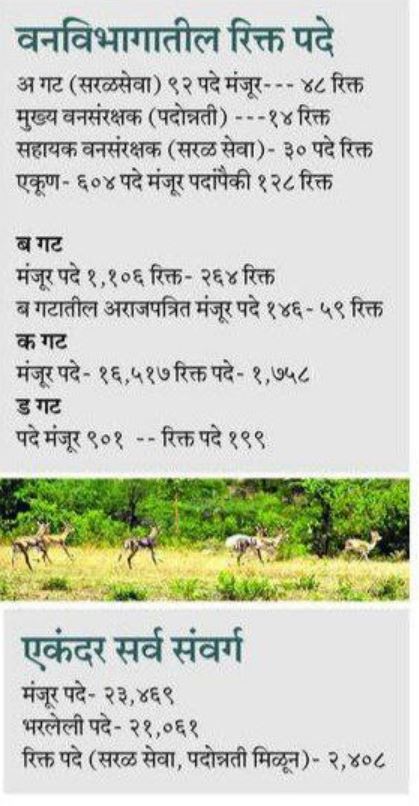 वनविभागातील रिक्त पदे
अ गट (सरळसेवा) ९२ पदे मंजूर--- ४८ रिक्त
मुख्य वनसंरक्षक (पदोन्नती) ---१४ रिक्त
सहायक वनसंरक्षक (सरळ सेवा)- ३० पदे रिक्त
एकूण- ६०४ पदे मंजूर पदांपैकी १२८ रिक्त
ब गट
मंजूर पदे १,१०६ रिक्त- २६४ रिक्त
ब गटातील अराजपत्रित मंजूर पदे १४६- ५९ रिक्त
क गट
मंजूर पदे- १६,५१७ रिक्त पदे- १,७५८
ड गट
पदे मंजूर ९०१ -- रिक्त पदे १९९
एकंदर सर्व संवर्ग
मंजूर पदे- २३,४६९
भरलेली पदे- २१,०६१
रिक्त पदे (सरळ सेवा, पदोन्नती मिळून)- २,४०८